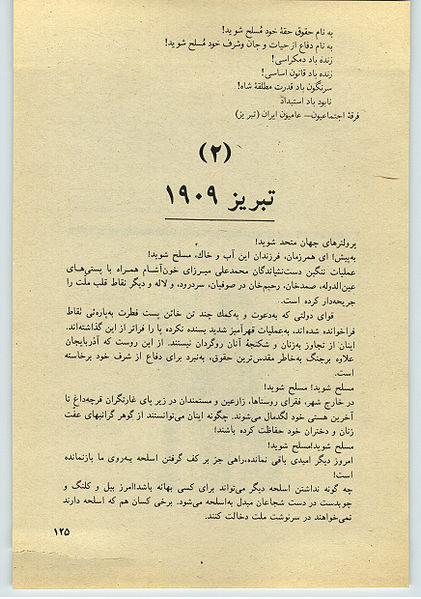 به نام حقوق حقهٔ خود مُسلح شوید!
به نام دفاع از حیات و جان وشرف خود مُسلح شوید!
زنده باد دمکراسی!
زنده باد قانون اساسی!
سرنگون باد قدرت مطلقهٔ شاه!
نابود باد استبداد
فرقهٔ اجتماعیون— عامیون ایران (تبریز)
(۲)
تبریز ۱۹۰۹
پرولترهای جهان متحد شوید!
به‌پیش! ای همرزمان، فرزندان این آب و خاك، مسلح شوید!
عملیات ننگین دست‌نشاندگان محمدعلی میرزای خون‌آشام همراه با پستی‌های
عین‌الدوله، صمدخان، رحیم‌خان در صوفیان، سردرود، و لاله و دیگر نقاط قلب ملّت را
جریحه‌دار کرده است.
قوای دولتی که به‌دعوت و به‌کمك چند تن خائن پست فطرت به‌پاره‌ئی نقاط
فراخوانده شده‌اند، به‌عملیات قهرآمیز شدید بسنده نکرده پا را فراتر از این گذاشته‌اند.
اینان از تجاوز به‌زنان و شکنجهٔ آنان روگردان نیستند. از این روست که آذربایجان
علاوه برجنگ به‌خاطر مقدس‌ترین حقوق، به‌نبرد برای دفاع از شرف خود برخاسته
است.
مسلح شوید! مسلح شوید!
در خارج شهر، فقرای روستاها، زارعین و مستمندان در زیر پای غارتگران قرچه‌داغ تا
آخرین هستی خود لگدمال می‌شوند. چگونه اینان می‌توانستند از گوهر گرانبهای عفّت
زنان و دختران خود حفاظت کرده باشند!
مسلح شوید!مسلح شوید!
امروز دیگر امیدی باقی نمانده،راهی جز بر کف گرفتن اسلحه پیه‌روی ما بازنمانده
است!
چه گونه نداشتن اسلحه دیگر می‌تواند برای کسی بهانه باشد!امرز بیل و کلنگ و
چوبدست در دست شجاعان مبدل به‌اسلحه می‌شود. برخی کسان هم که اسلحه دارند
نمی‌خواهند در سرنوشت ملت دخالت کنند.
۱۲۵